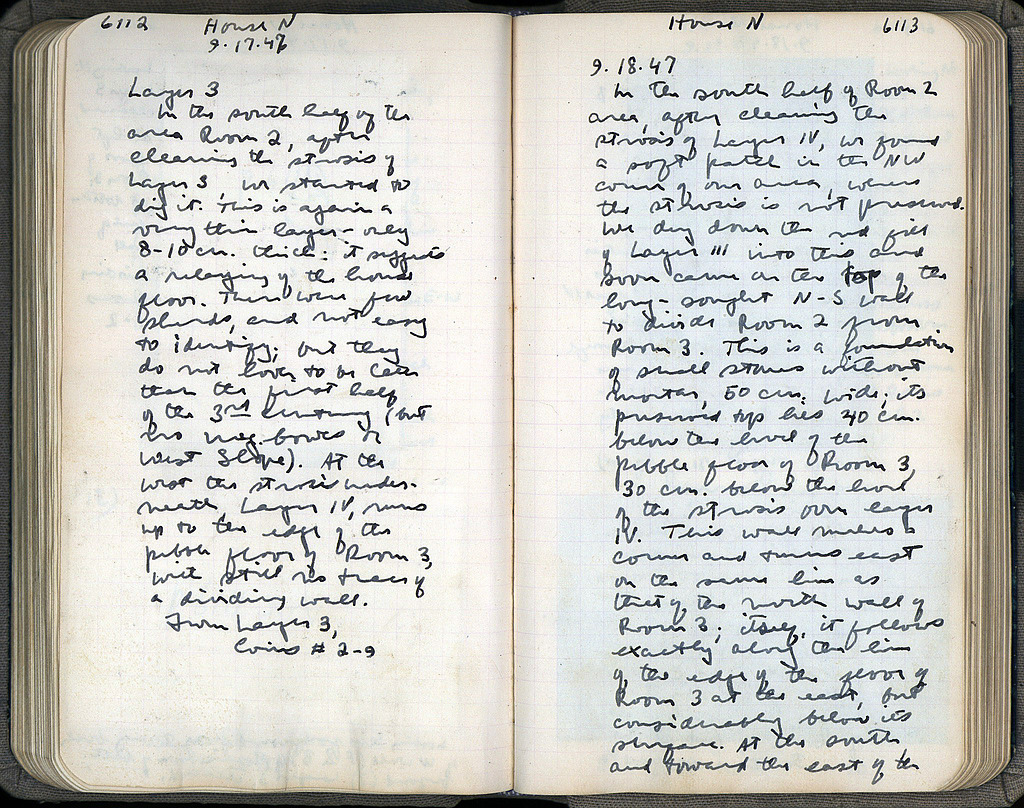 6112 House N
9.17.47
Layer 3
In the south half of the
area Room 2, after
cleaning the strosis of
Layer 3, we started to
dig it. This is again a
very thin layer - only
8-10 cm. thick: it suggests
a relaying of the house
floor. There were few
sherds, and not easy
to identify; but they
do not have to be later
than the first half
of the 3rd century (but
no meg. bowls or
West Slope). At the
west the strosis under-
neath, Layer IV, runs
up to the edge of the
pebble floor of Room 3,
with still no trace of
a dividing wall.
From Layer 3,
Coins # 2-9
House N 6113
9.18.47
In the south half of Room 2
area, after cleaning the
strosis of Layer IV, we found
a soft patch in the NW
corner of our area, where
the strosis is not preserved.
We dug down the red fill
of Layer III into this and
soon came on the top of the
long-sought N-S wall
to divide Room 2 from
Room 3. This is a foundation
of small stones without
mortar, 50 cm. wide; its
preserved top lies 40 cm.
below the level of the
pebble floor of Room 3,
30 cm. below the level
of the strosis over layer
IV. This wall makes a
corner and turns east
on the same line as
that of the north wall of
Room 3; itself, it follows
exactly along the line
of the edge of the floor of
Room 3 at the east, but
considerably below its
surface. At the south
and toward the east of the